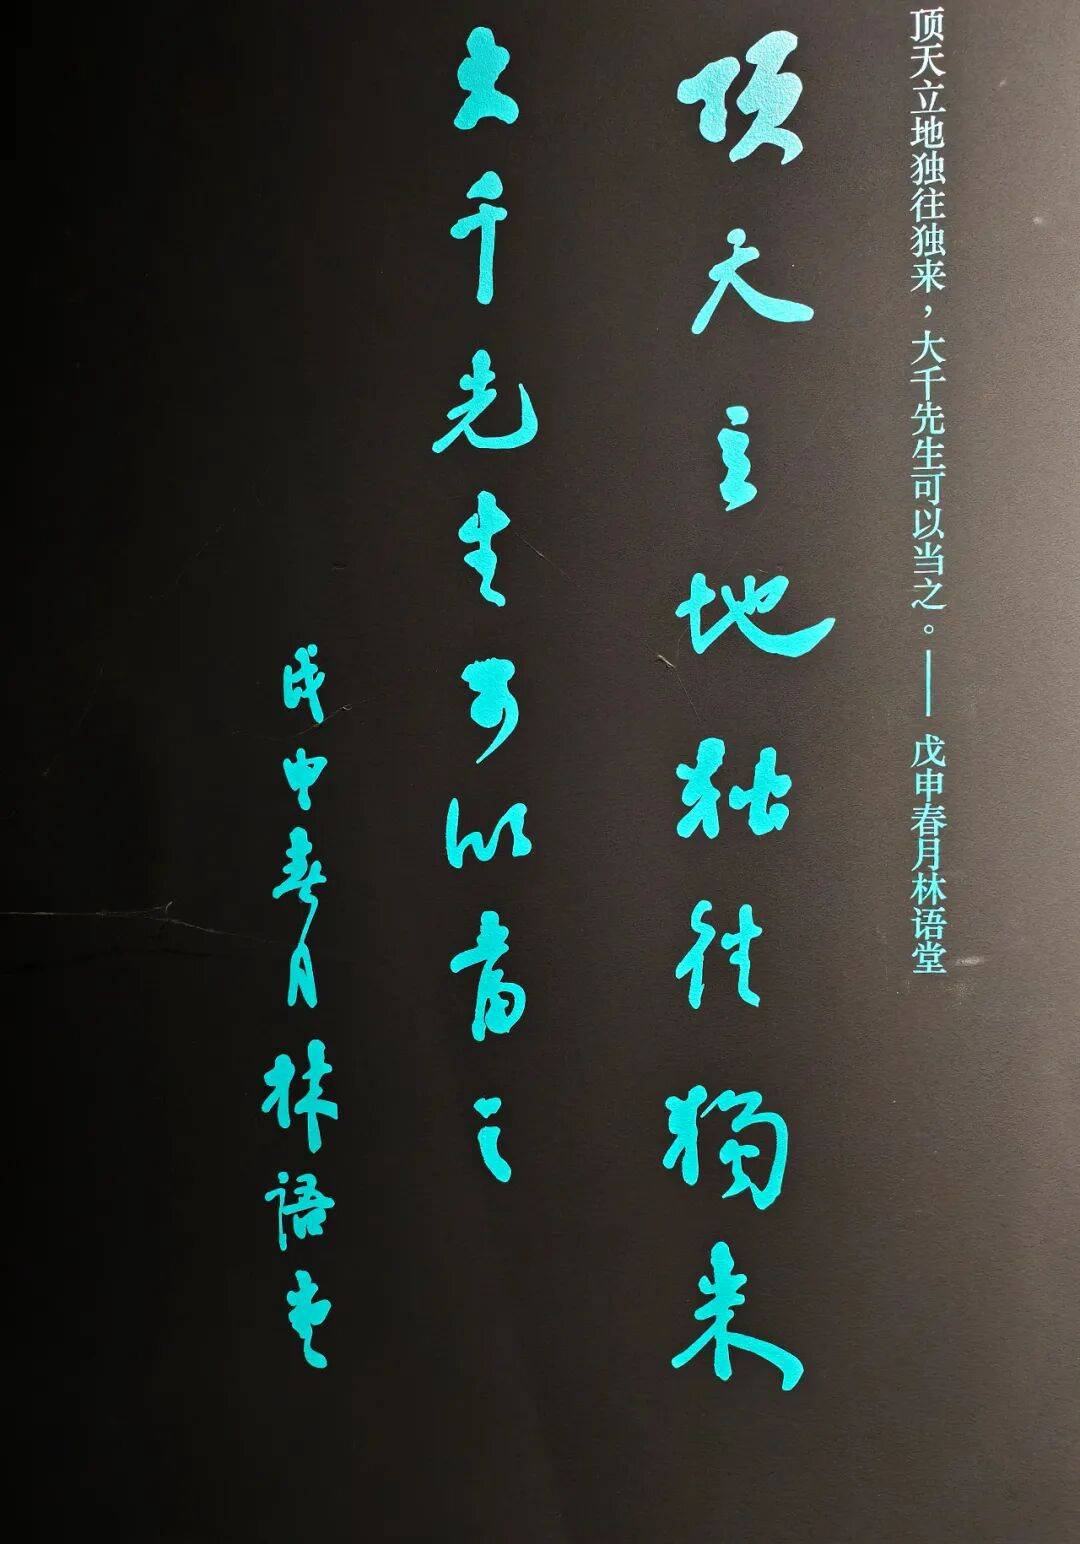 顶天立地独往独来，大千先生可以当之。—— 戊申春月林语堂
顶天立地独往獨来
大千先生可以當之
戊申春月林語堂